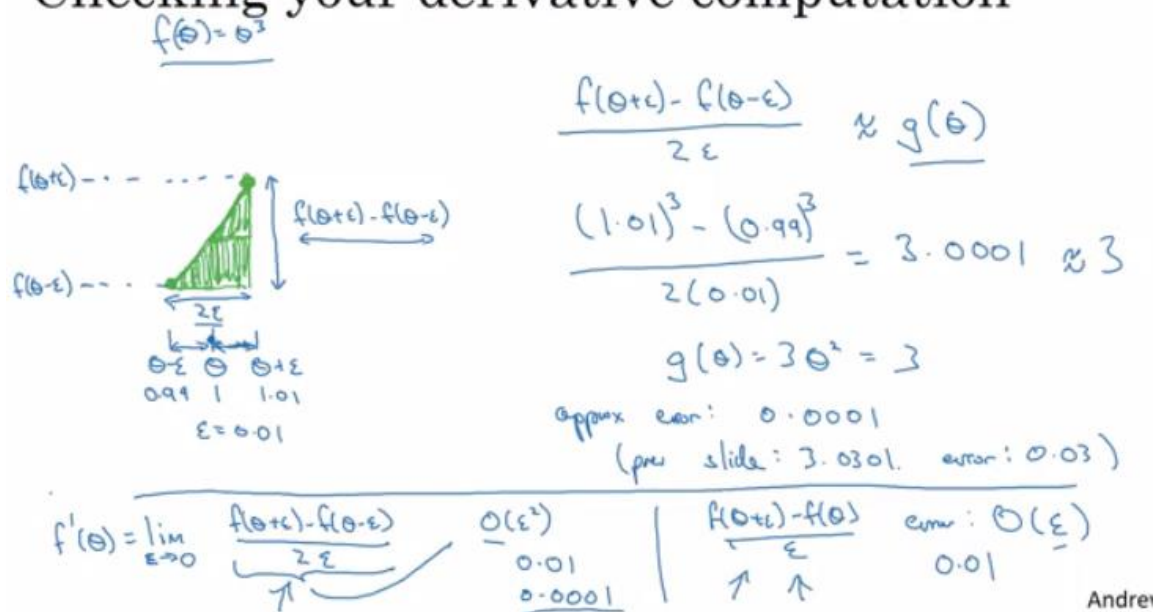 Checking your derivative computation
f(θ) = θ³
f(θ+ε)
f(θ-ε)
f(θ+ε) - f(θ-ε)
2ε
θ-ε θ θ+ε
0.99 1 1.01
ε = 0.01
f(θ+ε) - f(θ-ε) / 2ε ≈ g(θ)
(1.01)³ - (0.99)³ / 2(0.01) = 3.0001 ≈ 3
g(θ) = 3θ² = 3
approx error: 0.0001
(prev slide: 3.0301. error: 0.03)
f'(θ) = lim ε→0 f(θ+ε) - f(θ-ε) / 2ε O(ε²)
0.01
0.0001
f(θ+ε) - f(θ) / ε error: O(ε)
0.01
Andrew